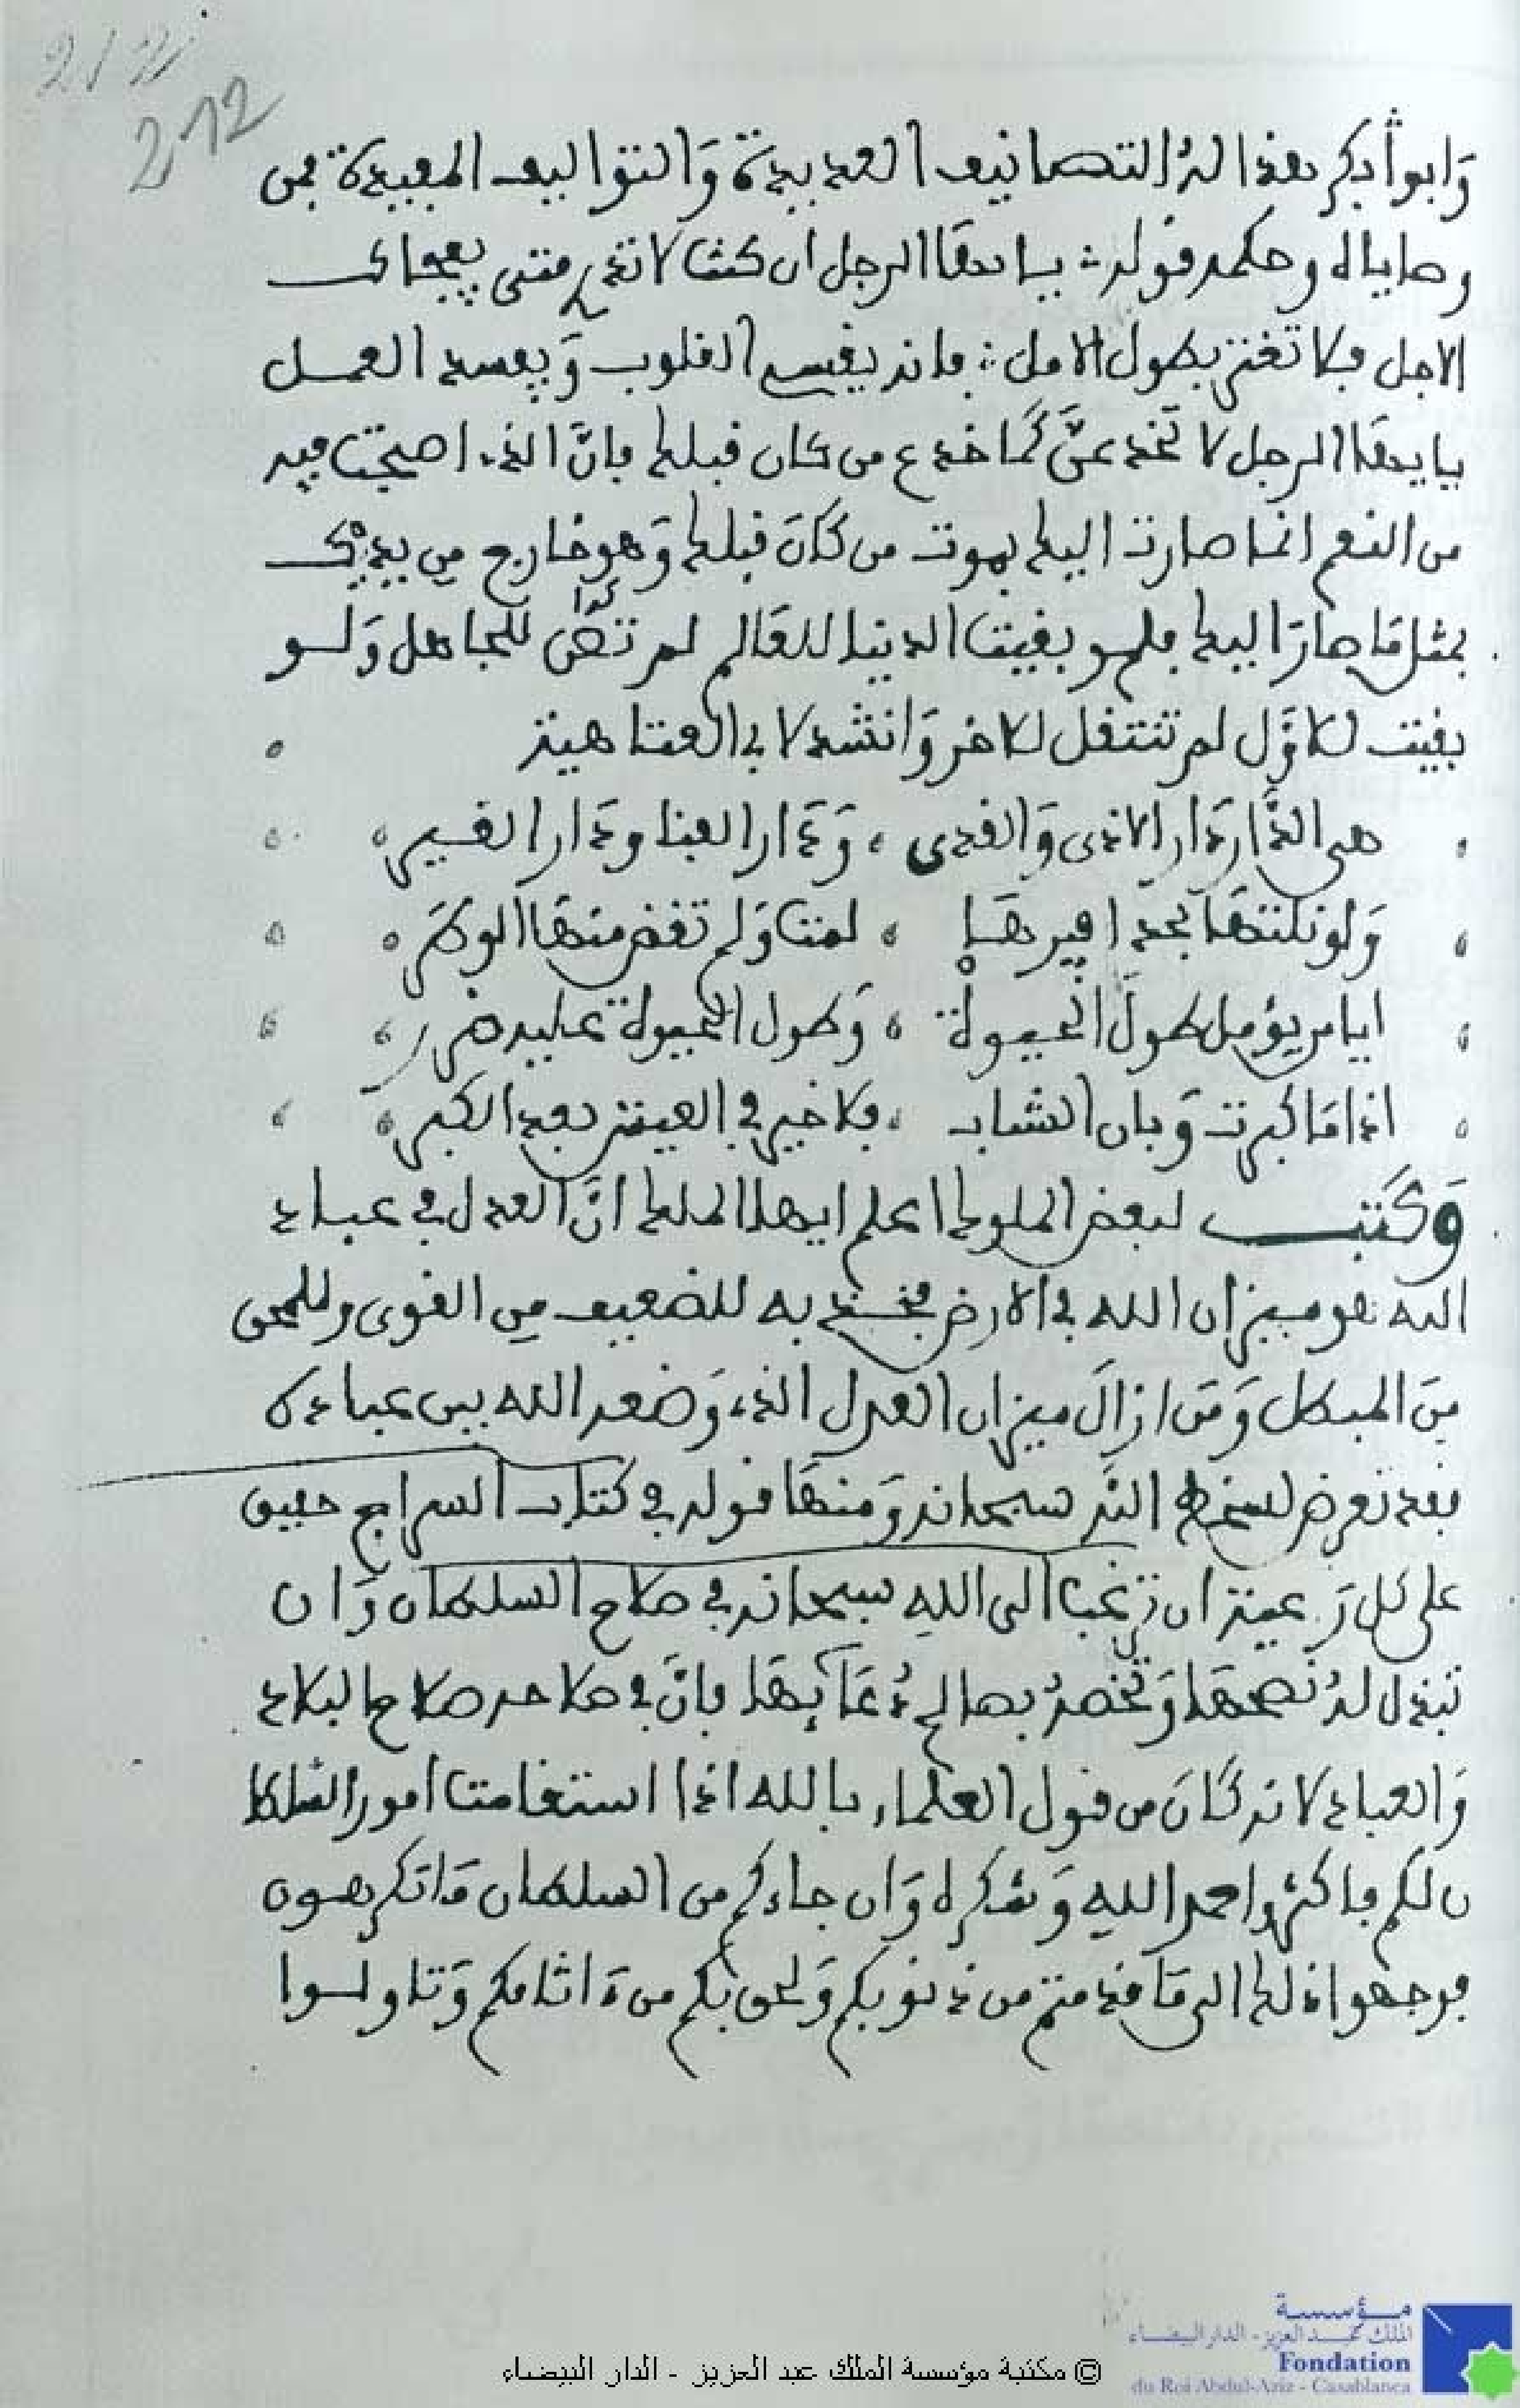 212
وَابوا بكر هذا لهُ التصانيف العديدة وَالتواليف المفيدة فمن
وصاياه وحكمه قوله يا ايها الرجل ان كنت لا تدري متى يفجأك
الاجل فلا تغتر بطول الامل فانه يقسي القلوب وَيفسد العمل
يا ايها الرجل لا تخدعنَّ كَما خدع من كان قبلك فانَّ الذي اصبحت فيه
من النعم انما صارت اليك بموت من كانَ قبلك وَهو خارج من يديك
بمثل مَا صارَ اليك فلو بقيت الدنيا للعَالم لم تكن للجاهل وَلو
كذا
بقيت للاوَّل لم تنتقل للاخر وَانشد لابي العتاهية
هي الدَّار دَار الاذى وَالقذى ، وَدَار الفنا ودَار الغير
وَلو نلتهَا بحذافيرهَا ، لمت وَلم تقض منهَا الوطر
ايا من يؤمل طولَ الحيوة ، وَطول الحيوة عليه ضرر
اذا مَا كبرت وَبان الشباب ، فلا خير في العيش بعد الكبر
وَكتب لبعض الملوك اعلم ايها الملك انَّ العدل في عباد
الله هو ميزان الله في الارض يوخذ به للضعيف من القوى وللمحق
منَ المبطل وَمَن ازالَ ميزان العدل الذي وَضعه الله بين عباده
فقد تعرض لسخط اللَّه سبحانه وَمنهَا قوله في كتاب السراج حقيق
على كل رَعية ان ترغب الى اللهِ سبحانه في صلاح السلطان وَان
تبذل لهُ نصحهَا وَتخصهُ بصالح دُعَآيهَا فانَّ في صلاحه صلاح البلاد
وَالعباد لانه كَانَ من قول العلماء بالله اذا استقامت امور السلطا
ن لكم فاكثروا حمد اللهِ وَشكره وَان جاءكم من السلطان مَا تكرهون
فوجهوا ذلك الى مَا قدمتم من ذنوبكم وَلحق بكم من ءاثامكم وَتاولوا
© مكتبة مؤسسة الملك عبد العزيز - الدار البيضاء
مؤسسة
الملك عبد العزيز - الدار البيضاء
Fondation
du Roi Abdul-Aziz - Casablanca